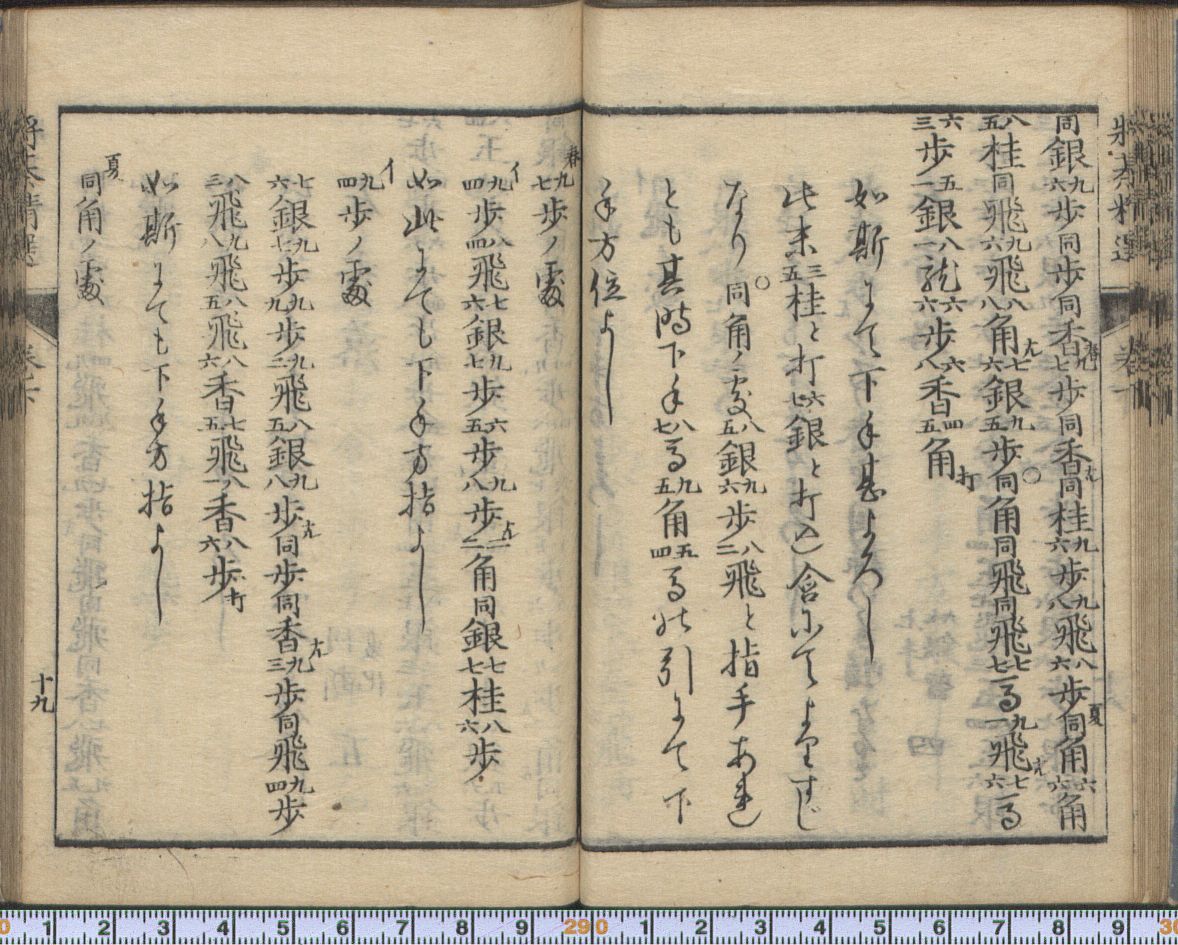 将棊精選　巻下
同銀九六歩同歩同香春九七歩同香成同桂九六歩九八飛八六歩夏同角六六角
八五桂同飛九六飛八八角成七六銀九五歩○同角同飛同飛七七馬九一飛成七六馬
六三歩五一銀八一龍六六歩六八香四五角打
如斯にて下手甚よろし
此末三五桂と打六七銀と打込含にてよりすじ
なり○同角ノ処八五銀九六歩八二飛と指手あれ
とも其時下手八七馬九五角五四馬と引にて下
手方位よし
春九七歩ノ處
イ九四歩八四飛七六銀九七歩六五歩九八歩成二二角同銀七七桂八六歩
如此にても下手方指よし
イ九四歩ノ處
七六銀九七歩九九歩九二飛八五銀九八歩成同歩同香成九三歩同飛九四歩
八三飛九八飛八五飛八六香七五飛八一香八六歩打
如斯にても下手方指よし
夏同角ノ處
将棊精選　巻下
十九